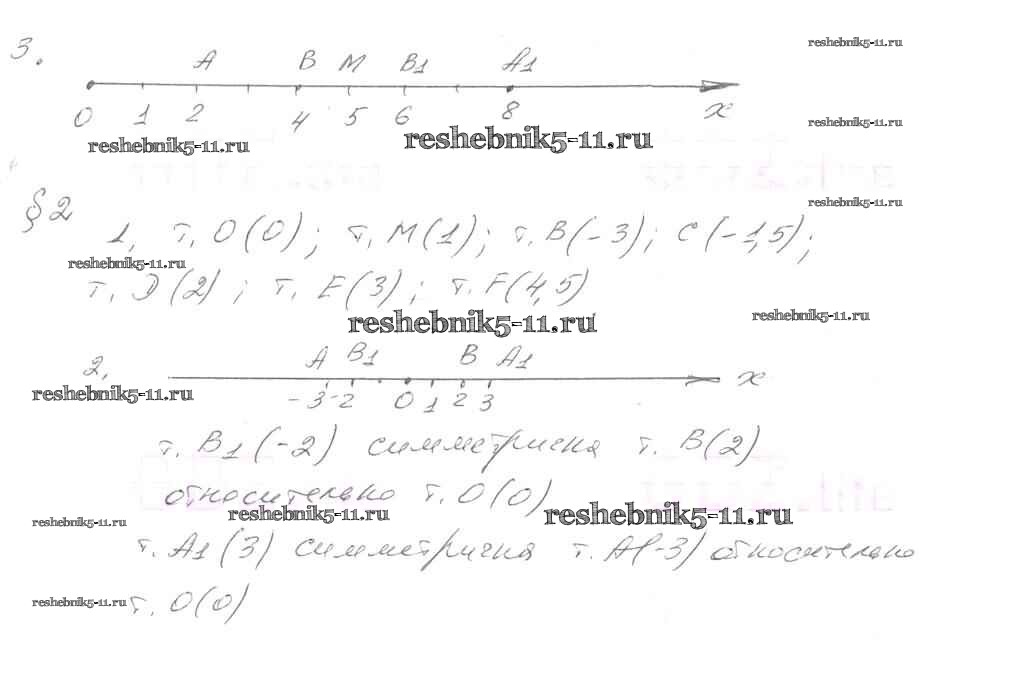 3.
A B M B1 A1
0 1 2 4 5 6 8 x
§2
1, т. O(0); т. M(1); т. B(-3); C(-1,5);
т. D(2); т. E(3); т. F(4,5)
A B1 B A1
2,
-3 -2 0 1 2 3 x
т. B1(-2) симметрична т. B(2)
относительно т. O(0)
т. A1(3) симметрична т. A(-3) относительно
т. O(0)
reshebnik5-11.ru
reshebnik5-11.ru
reshebnik5-11.ru
reshebnik5-11.ru
reshebnik5-11.ru
reshebnik5-11.ru
reshebnik5-11.ru
reshebnik5-11.ru
reshebnik5-11.ru
reshebnik5-11.ru
reshebnik5-11.ru
reshebnik5-11.ru
reshebnik5-11.ru